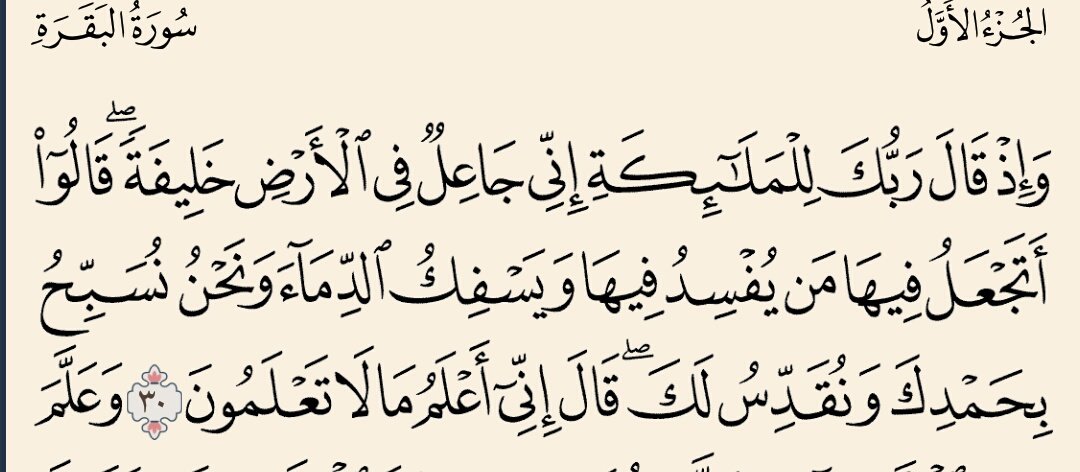 الجُزْءُ الأَوَّلُ
سُورَةُ البَقَرَةِ
وَإِذْ قَالَ رَبُّكَ لِلْمَلَـٰٓئِكَةِ إِنِّى جَاعِلٌ فِى ٱلْأَرْضِ خَلِيفَةً ۖ قَالُوٓا۟
أَتَجْعَلُ فِيهَا مَن يُفْسِدُ فِيهَا وَيَسْفِكُ ٱلدِّمَآءَ وَنَحْنُ نُسَبِّحُ
بِحَمْدِكَ وَنُقَدِّسُ لَكَ ۖ قَالَ إِنِّىٓ أَعْلَمُ مَا لَا تَعْلَمُونَ ٣٠ وَعَلَّمَ